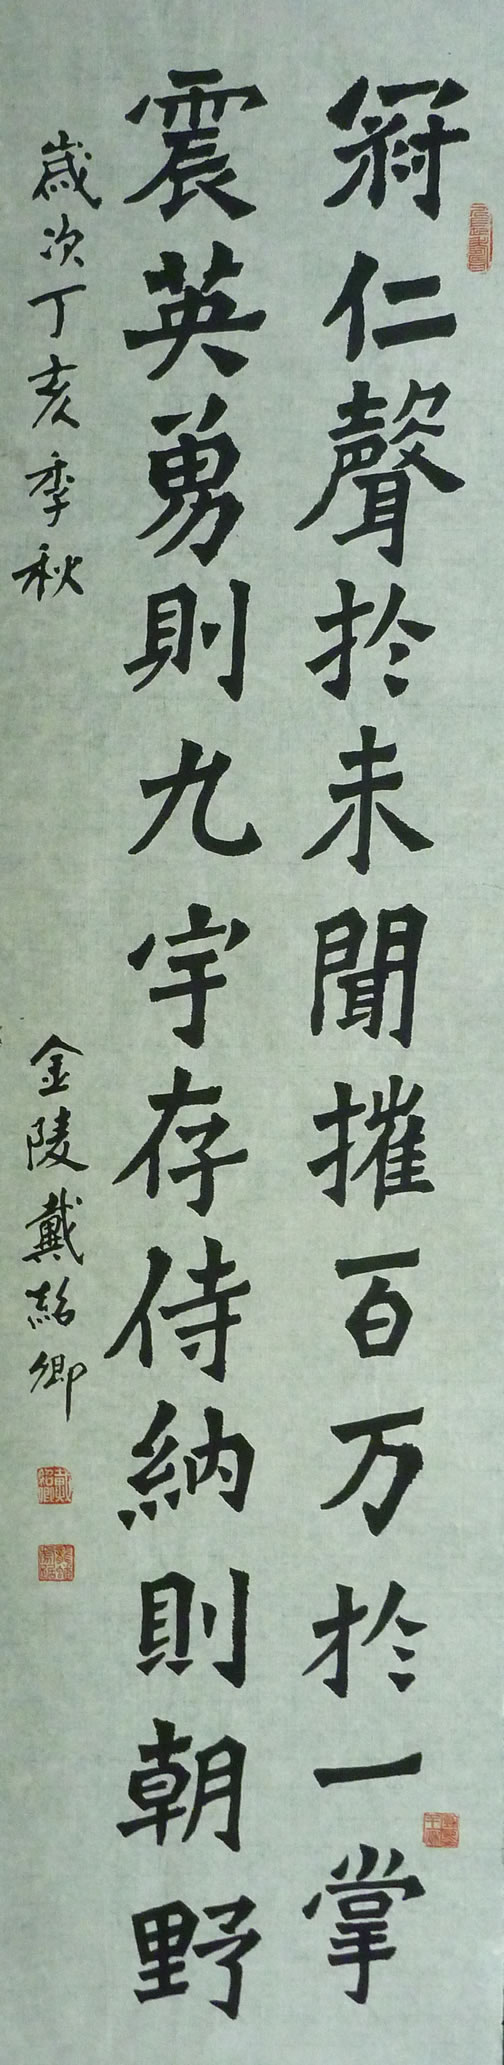 冠仁聲於未聞摧百万於一掌
震英勇則九宇存侍納則朝野
歲次丁亥季秋
金陵戴紹卿